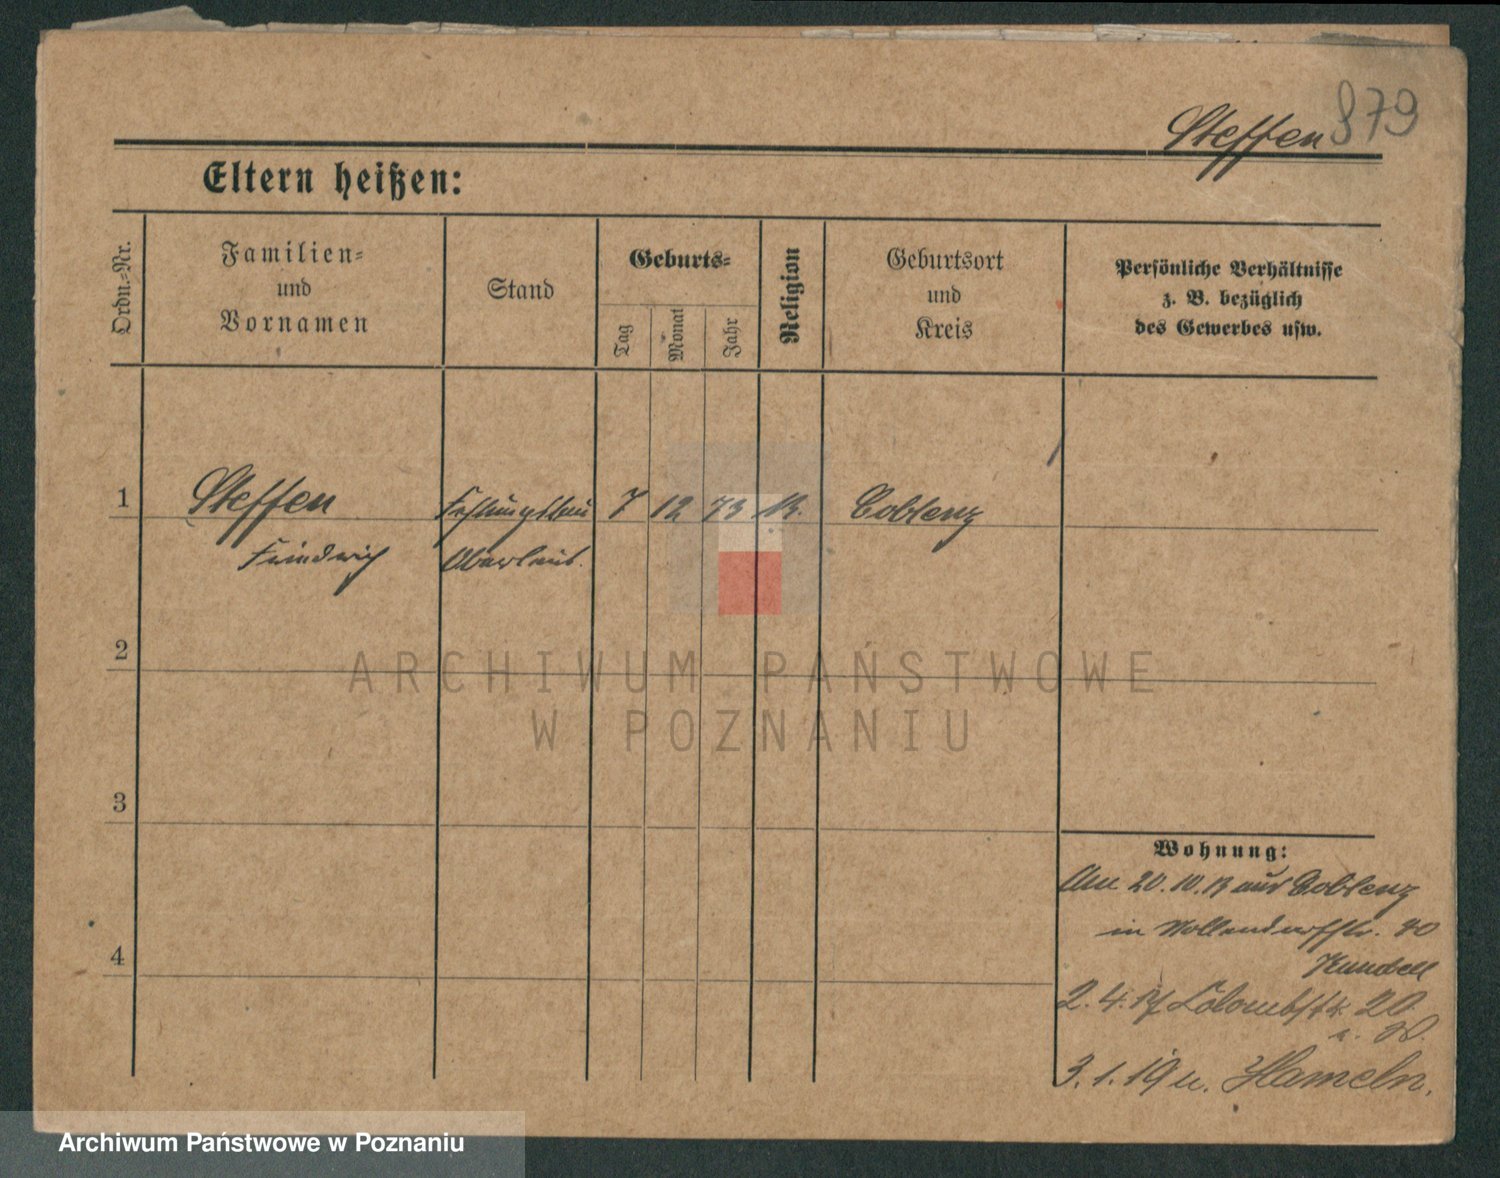 Steffen 879
Eltern heißen:
Ordn.-Nr.
Familien-
und
Vornamen
Stand
Geburts-
Tag
Monat
Jahr
Religion
Geburtsort
und
Kreis
Persönliche Verhältnisse
z. B. bezüglich
des Gewerbes usw.
1 Steffen Festungsbau 7 12 73 Coblenz
Friedrich Oberleut.
2
3
4
Wohnung:
20.10.13 aus Coblenz
in
2.4.17 20
3.1.19 n. Hameln.
ARCHIWUM PAŃSTWOWE
W POZNANIU
Archiwum Państwowe w Poznaniu